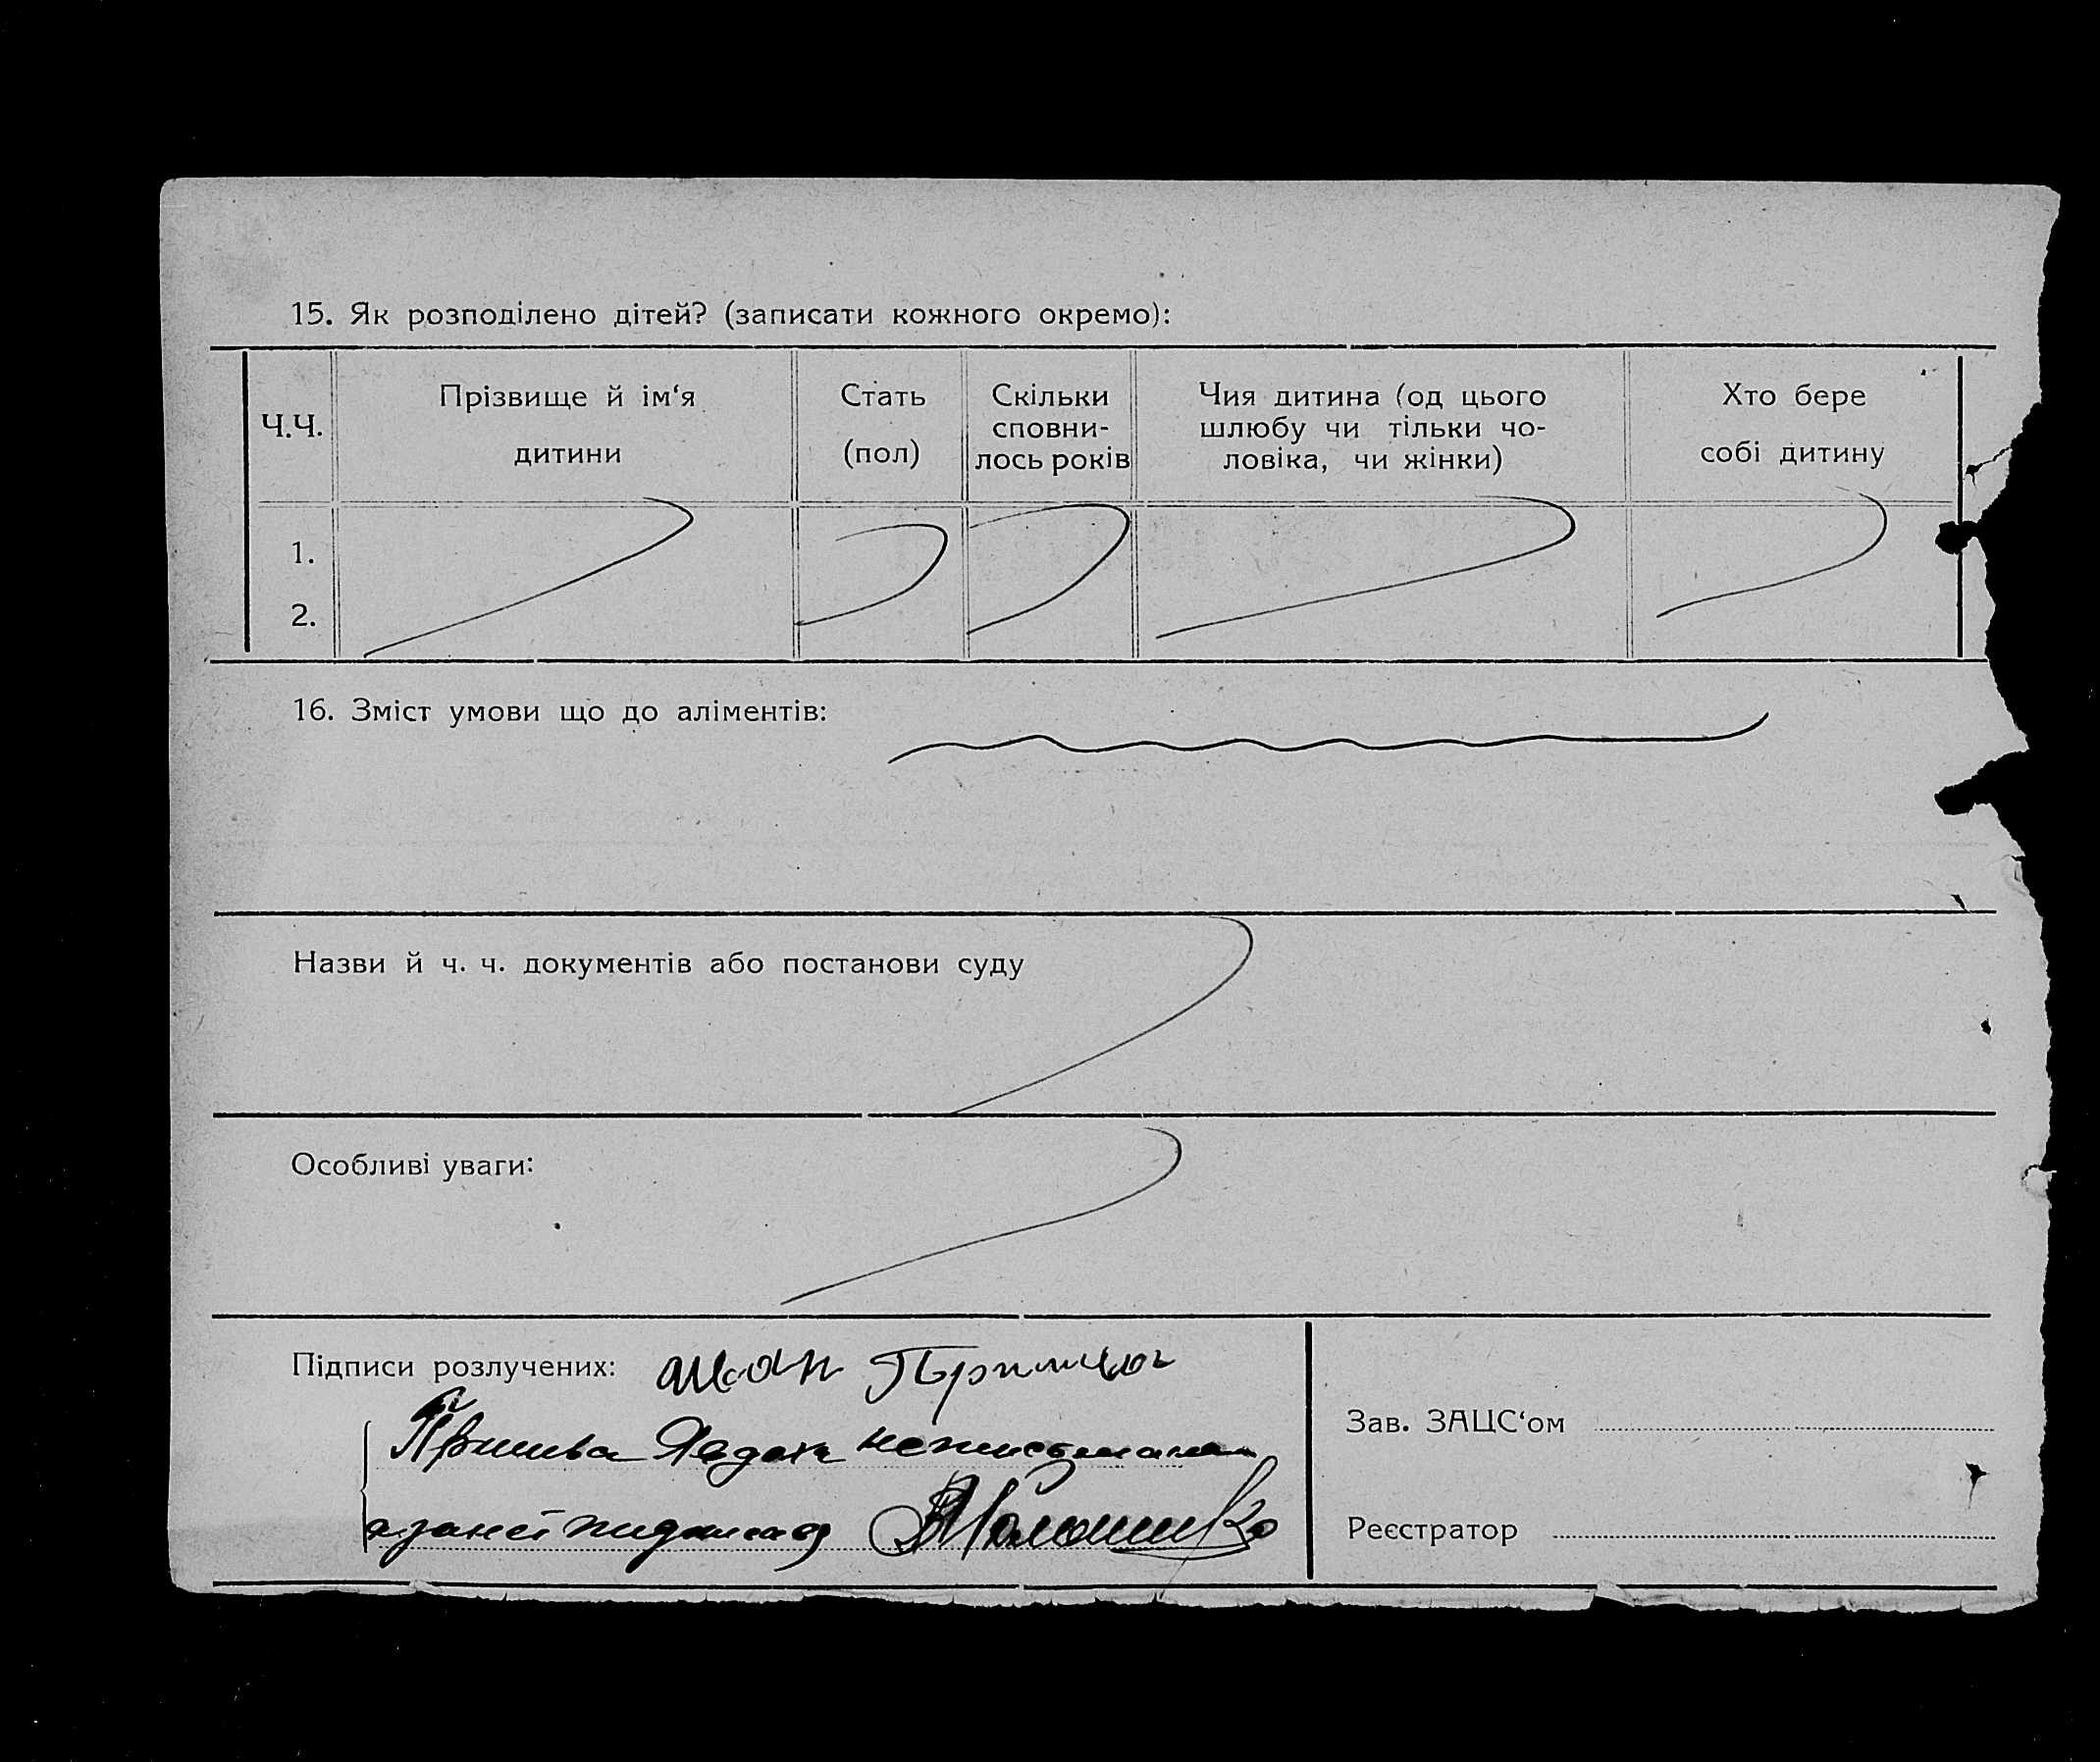 15. Як розподілено дітей? (записати кожного окремо):
Ч.Ч.
Прізвище й ім‘я
дитини
Стать
(пол)
Скільки
сповни-
лось років
Чия дитина (од цього
шлюбу чи тільки чо-
ловіка, чи жінки)
Хто бере
собі дитину
1.
2.
16. Зміст умови що до аліментів:
Назви й ч. ч. документів або постанови суду
Особливі уваги:
Підписи розлучених:
неписьменна
Зав. ЗАЦС‘ом
Реєстратор